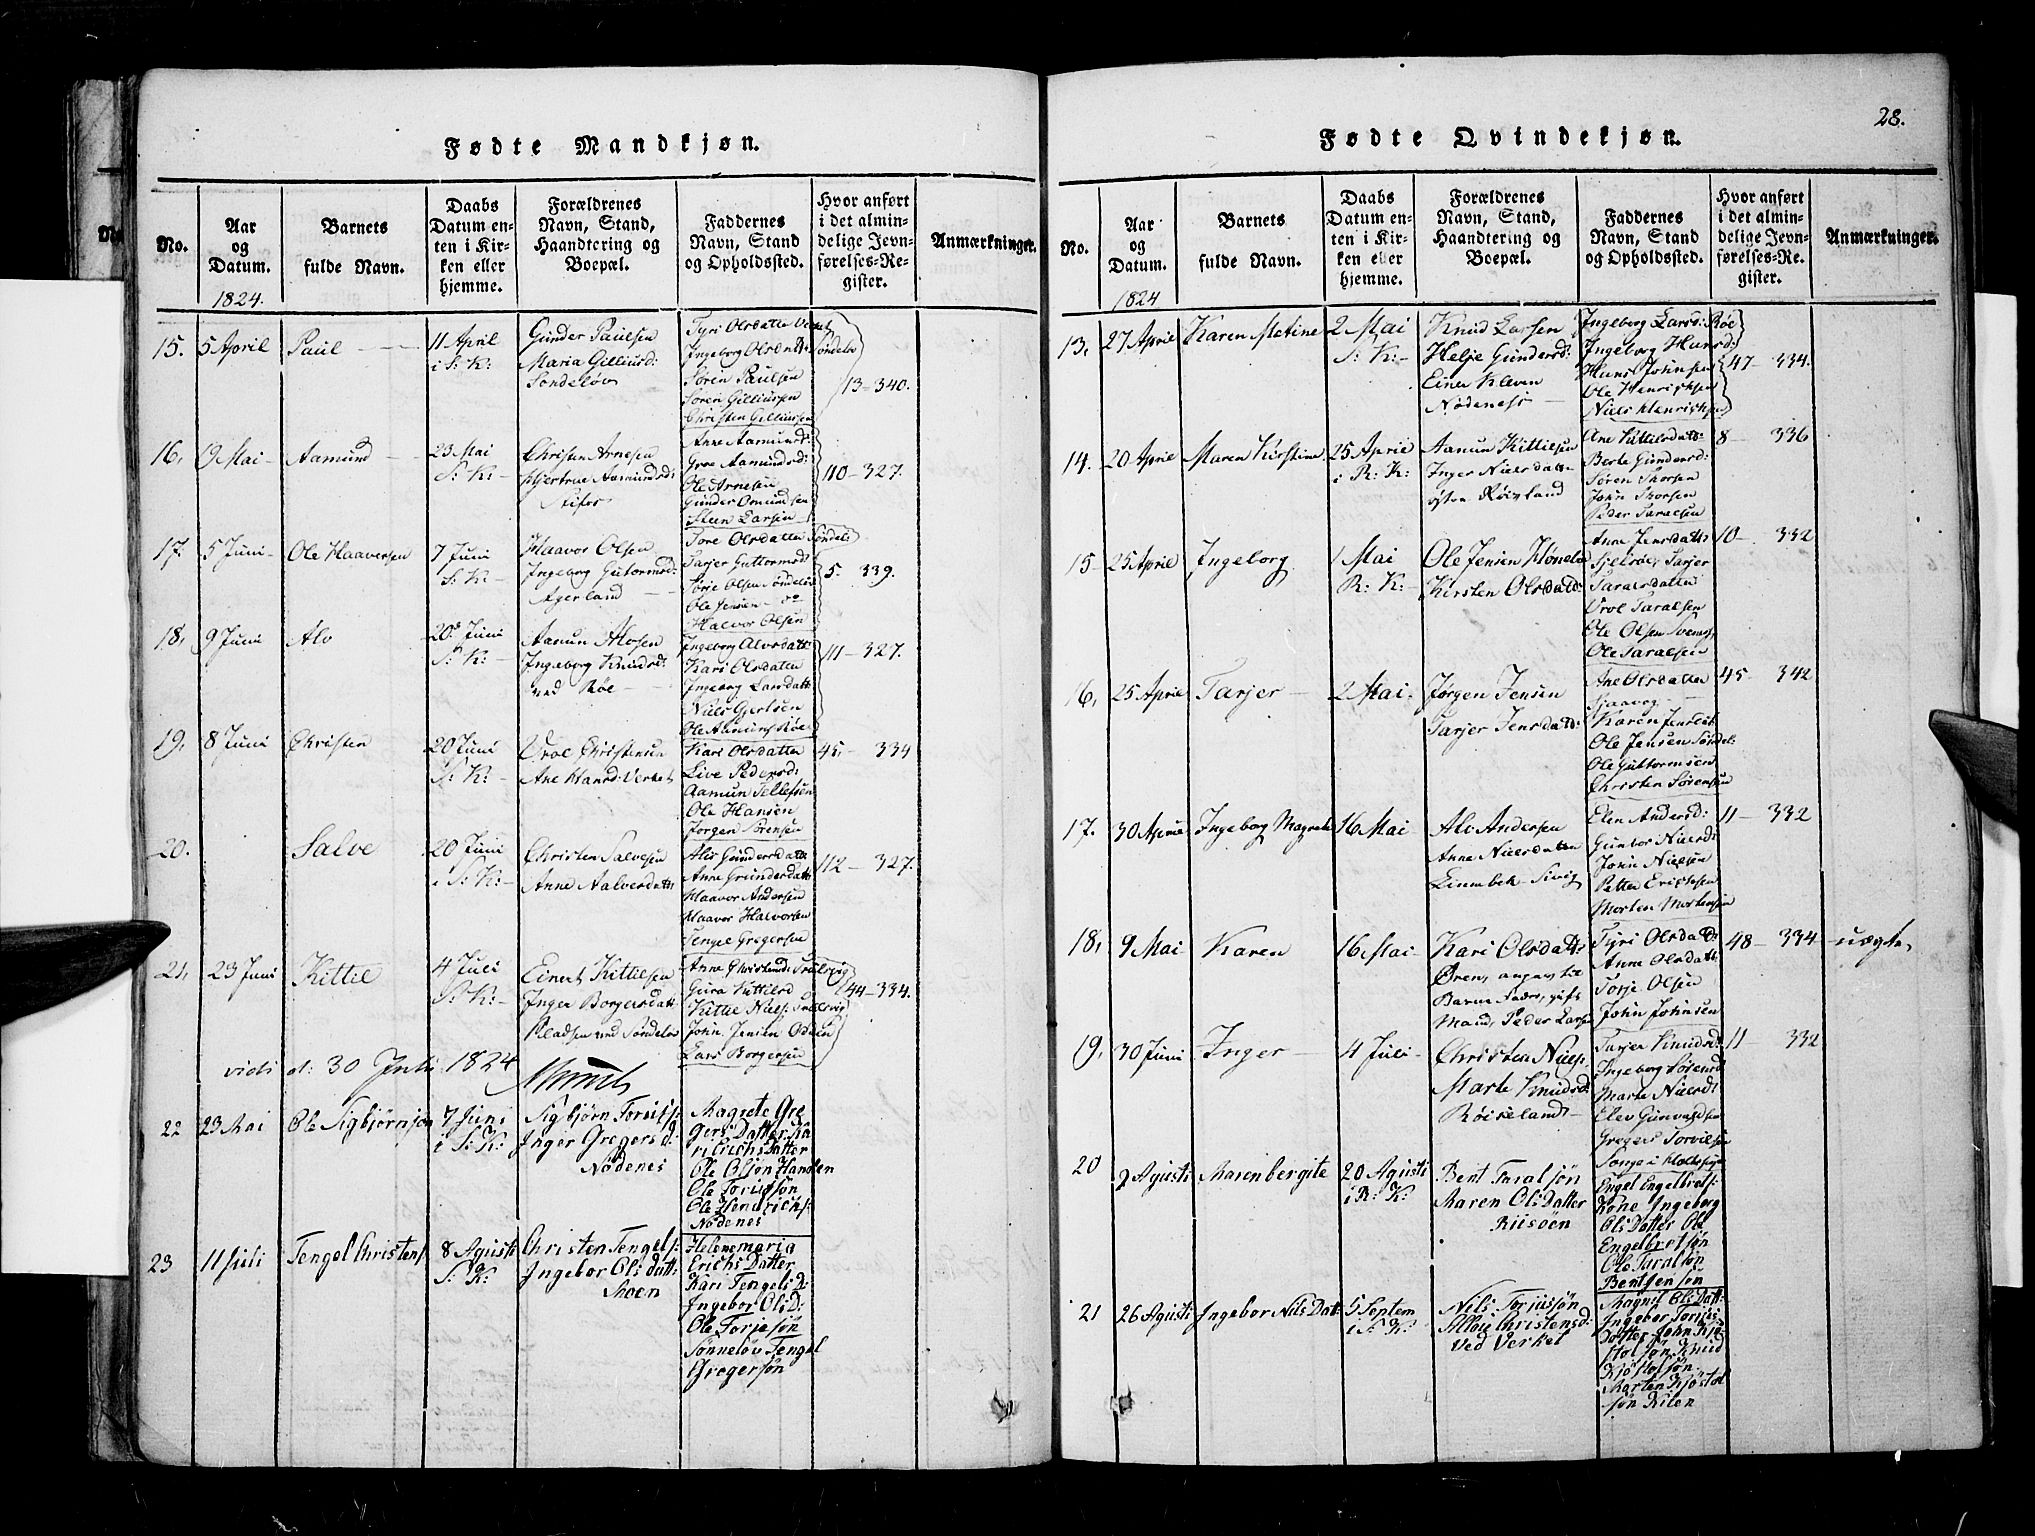 28.
Fødte Mandkjøn.
No.
Aar
og
Datum.
1824.
Barnets
fulde Navn.
Daabs
Datum en-
ten i Kir-
ken eller
hjemme.
Forældrenes
Navn, Stand,
Haandtering og
Boepæl.
Faddernes
Navn, Stand
og Opholdssted.
Hvor anført
i det almin-
delige Jevn-
førelses-Re-
gister.
Anmærkninger.
15. 5 April Paul 11 April
i S: K:
Gunder Paulsen
Maria Gilliusd:
Sondeløv
Tyri Olsdatte
Ingeborg Olsd
Søren Paulsen
Soren Gilliussen
Christen Gilliussen
13 - 340.
16, 9 Mai Aamund 23 Mai
S: K:
Christen Arnesen
Gjertrue Aamundsd:
Anne Aamundsd:
Groe Aamundsd:
Ole Arnesen
Gunder Omundsen
Steen Larsen
110 - 327.
17. 5 Juni Ole Haaversen 7 Juni
S: K:
Haavor Olsen
Ingeborg Gutormsd:
Agerland
Tore Olsdatter Sondel:
Tarjer Guttormsd:
Terje Olsen Søndeløv
Ole Jensen - do
Halvor Olsen
5. 339.
18, 9 Juni Alv 20d Juni
S: K:
Aamun Alvsen
Ingeborg Knudsd:
ved Røe
Ingeborg Alvsdatt:
Kari Olsdatter
Ingeborg Larsdatt:
Niels Gjertsen
Ole Aamuns Røe
111 - 327.
19, 8 Juni Christen 20 Juni
S: K:
Vrol Christensen
Ane Hansd: Verket
Kari Olsdatter
Live Pedersd:
Aamun Tellefsen
Ole Hansen
Jørgen Sørensen
45, - 334
20. Salve 20 Juni
i S: K:
Christen Salvesen
Anne Aalversdatt:
Alis Gundersdatt:
Anne Gundersdatt:
Haavor Andersen
Haavor Halvorsen
Tengel Gregersen
112 - 327.
21, 23 Juni Kittil 4 Juli
S: K:
Einert Kittilsen
Inger Borgersdatt:
Pladsen ved Søndeløv
Anne Christensd:
Gura Kittilsd
Kittil Niels:
John Jensen Odden
Lars Borgersen
44 - 334.
vidi d: 30 Juli 1824
22 23 Mai Ole Sigbjørnsøn 7 Juni
i S: K:
Sigbjørn Torris:
Inger Gregers d:
Nødenes
Magrete Gre
gers Datter Ka
ri Erichs Datter
Ole Olsøn Handen
Ole Torisøn
Ole Hendrichs:
Nødenes
23 11 Juli Tengel Christens: 8 Agusti
S: K:
Christen Tengels:
Ingebor Ols datt:
Moen
Helene maria
Erichs Datter
Kari Tengels d:
Ingebor Ols D:
Ole Torjesøn
Sønneløv Tengel
Gregersøn
Fødte Qvindekjøn.
No.
Aar
og
Datum.
1824
Barnets
fulde Navn.
Daabs
Datum en-
ten i Kir-
ken eller
hjemme.
Forældrenes
Navn, Stand,
Haandtering og
Boepæl.
Faddernes
Navn, Stand
og Opholdssted.
Hvor anført
i det almin-
delige Jevn-
førelses-Re-
gister.
Anmærkninger.
13, 27 April Karen Metine 2 Mai
S: K:
Knud Larsen
Helje Gundersd:
Einer Kleven
Nødenes
Ingeborg Larsd: Røe
Ingeborg Hansd:
Hans Johnsen
Ole Henrichsen
Niels Henrichsen
47 - 334.
14. 20 April Maren Kirstine 25 April
i R: K:
Aanun Kittilsen
Inger Nielsdatt:
østen Røisland
Ane Kittilsdatt:
Berte Gundersd:
Sören Thorsen
John Thorsen
Peder Taralsen
8 - 336
15 25 April Ingeborg 1 Mai
R: K:
Ole Jensen
Kirsten Olsdatt:
Anne Jensdatt:
Tarjer
Taralsdatter
Vrol Taralsen
Ole Olsen
Ole Taralsen
10 - 332
16, 25 April Tarjer 2 Mai
Jørgen Jensen
Tarjer Jensdatt:
Ane Olsdatter
Sjaavog
Karen Jensdatt:
Ole Jensen Søndel:
Ole Guttormsen
Christen Sørensen
45 - 342
17. 30 April Ingeborg Magrete 16 Mai
Alv Andersen
Anne Nielsdatter
Limbek Sivig
Elen Andersd:
Gunbor Nielsd:
John Nielsen
Petter Erichsen
Morten Mortensen
11 - 332
18, 9 Mai Karen 16 Mai
Kari Olsdatt:
Øren, angav til
Barne Fader, gift
Mand, Peder Larsen
Tyri Olsdatt:
Anne Olsdatt:
Torje Olsen
John Johnsen
48 - 334 uægte,
19, 30 Juni Inger 4 Juli
Christen Niels:
Marte Knudsd:
Røiseland
Tarjer Knudsd:
Ingeborg Sörensd:
Marte Nielsd:
Elev Gunvaldsen
Gregers Torvilsen
Songe i Holts
11 332
20 2 Agusti Maren bergite 20 Agusti
i R: K:
Bent Taralsøn
Maren Ols Datter
Riisøen
Engel Engelbrets:
Kone Ingeborg
Ols Datter Ole
Engelbretsøn
Ole Taralsøn
Bent Jensøn
21 26 Agusti Ingebor Nils Dat: 5 Septem
i S: K:
Nils Torjussøn
Alloug Christens d:
Ved Verket
Magnil Ols Datt:
Ingebor Torjus
Datter John Kjö
stolsøn Knud
Kjöstolsøn
Morten Kjöstol
søn Kilen